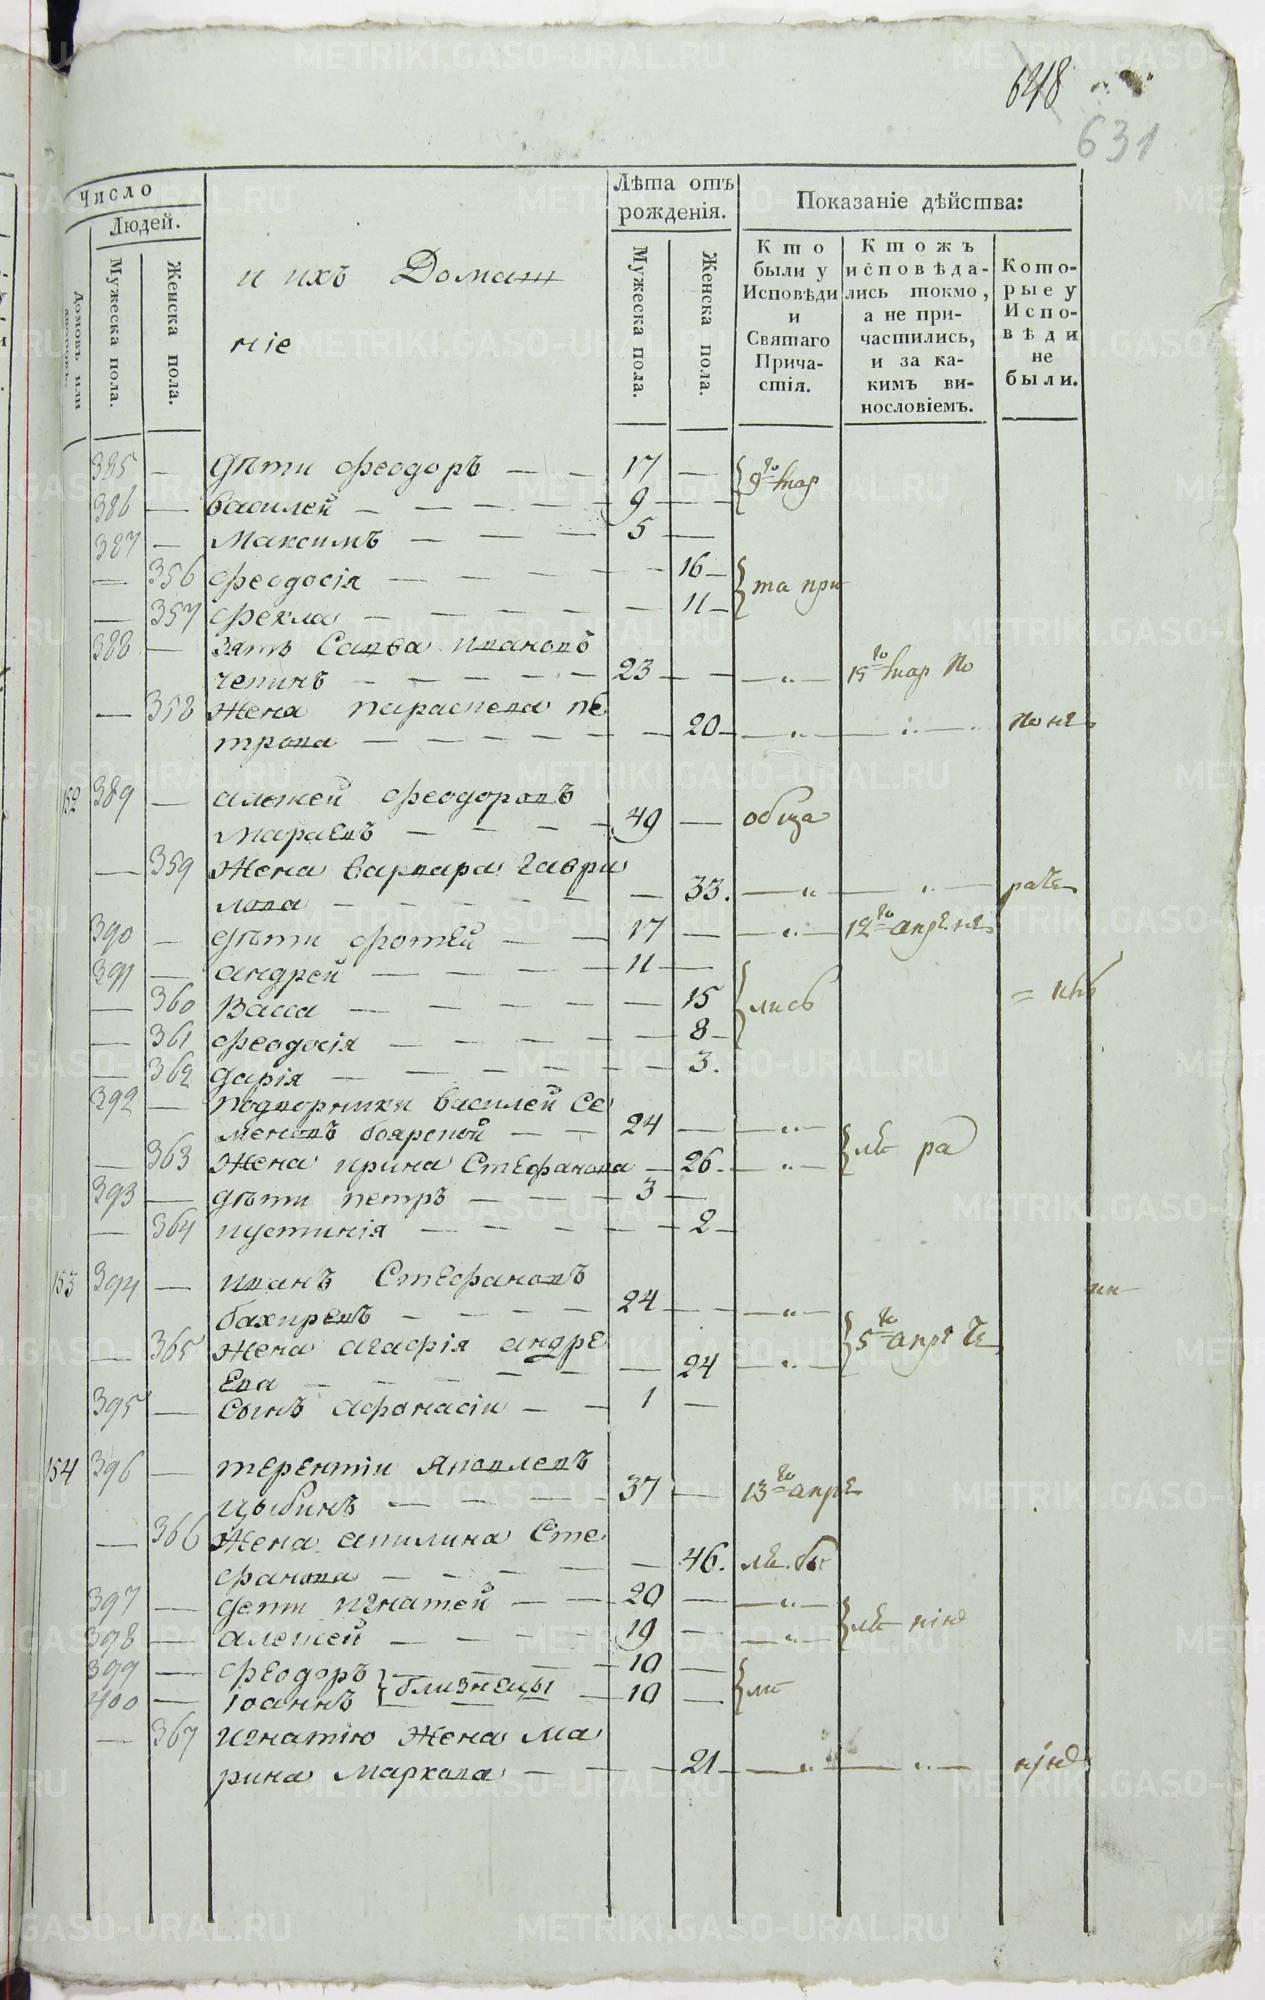 648
631
Число
Людей.
Домовъ или дворовъ.
Мужеска пола.
Женска пола.
и ихъ Домаш
ніе
Лѣта отъ рожденія.
Мужеска пола.
Женска пола.
Показаніе дѣйства:
Кто были у Исповѣди и Святаго Причастія.
Ктожъ исповѣдались токмо, а не причастились, и за какимъ винословіемъ.
Которые у Исповѣди не были.
385 — дѣти феодоръ — — 17 — 9го мар
386 — василей — — — — 9 — —
387 — Максимъ — — — 5 —
— 356 феодосія — — — — — 16 — та при
— 357 фекла — — — — — 11 —
388 — зять Савва ивановъ
чепинъ — — — — — 23 — — —„— 15го мар по
— 358 Жена параскева пе
трова — — — — — 20 — —„— —„— по не
152 389 — алексей феодоровъ
мараевъ — — — — 49 — обща
— 359 Жена варвара гаври
лова — — — — — — 33. —„— —„—
390 — дѣти фотей — — 17 — —„— 12го апреле
391 — андрей — — — — 11 —
— 360 Васса — — — — — 15 лись
— 361 феодосія — — — — — 8 —
— 362 дарія — — — — — — 3.
392 — подворники василей се
меновъ боярской — — 24 — —„—
— 363 Жена ирина Стефанова — 26. —„— ле ра
393 — дѣти петръ — — — 3 —
— 364 иустинія — — — — — 2 —
153 394 — иванъ Стефановъ
бахиревъ — — — — 24 — — —„—
— 365 Жена агафія андре
ева — — — — — — 24 —„— 5го апре
395 — сынъ афонасіи — — 1 —
154 396 — терентіи яковлевъ
цыбинъ — — — — 37 — 13го апре
— 366 Жена акилина Сте
фанова — — — — — 46. ля.
397 — дети игнатей — — 20 — —„—
398 — алексей — — — — 19 — —„—
399 — феодоръ — — — — 10 —
близнецы
400 — іоаннъ — — — — 10 — ли
— 367 игнатію жена ма
рина маркова — — — 21 — —„— —„—